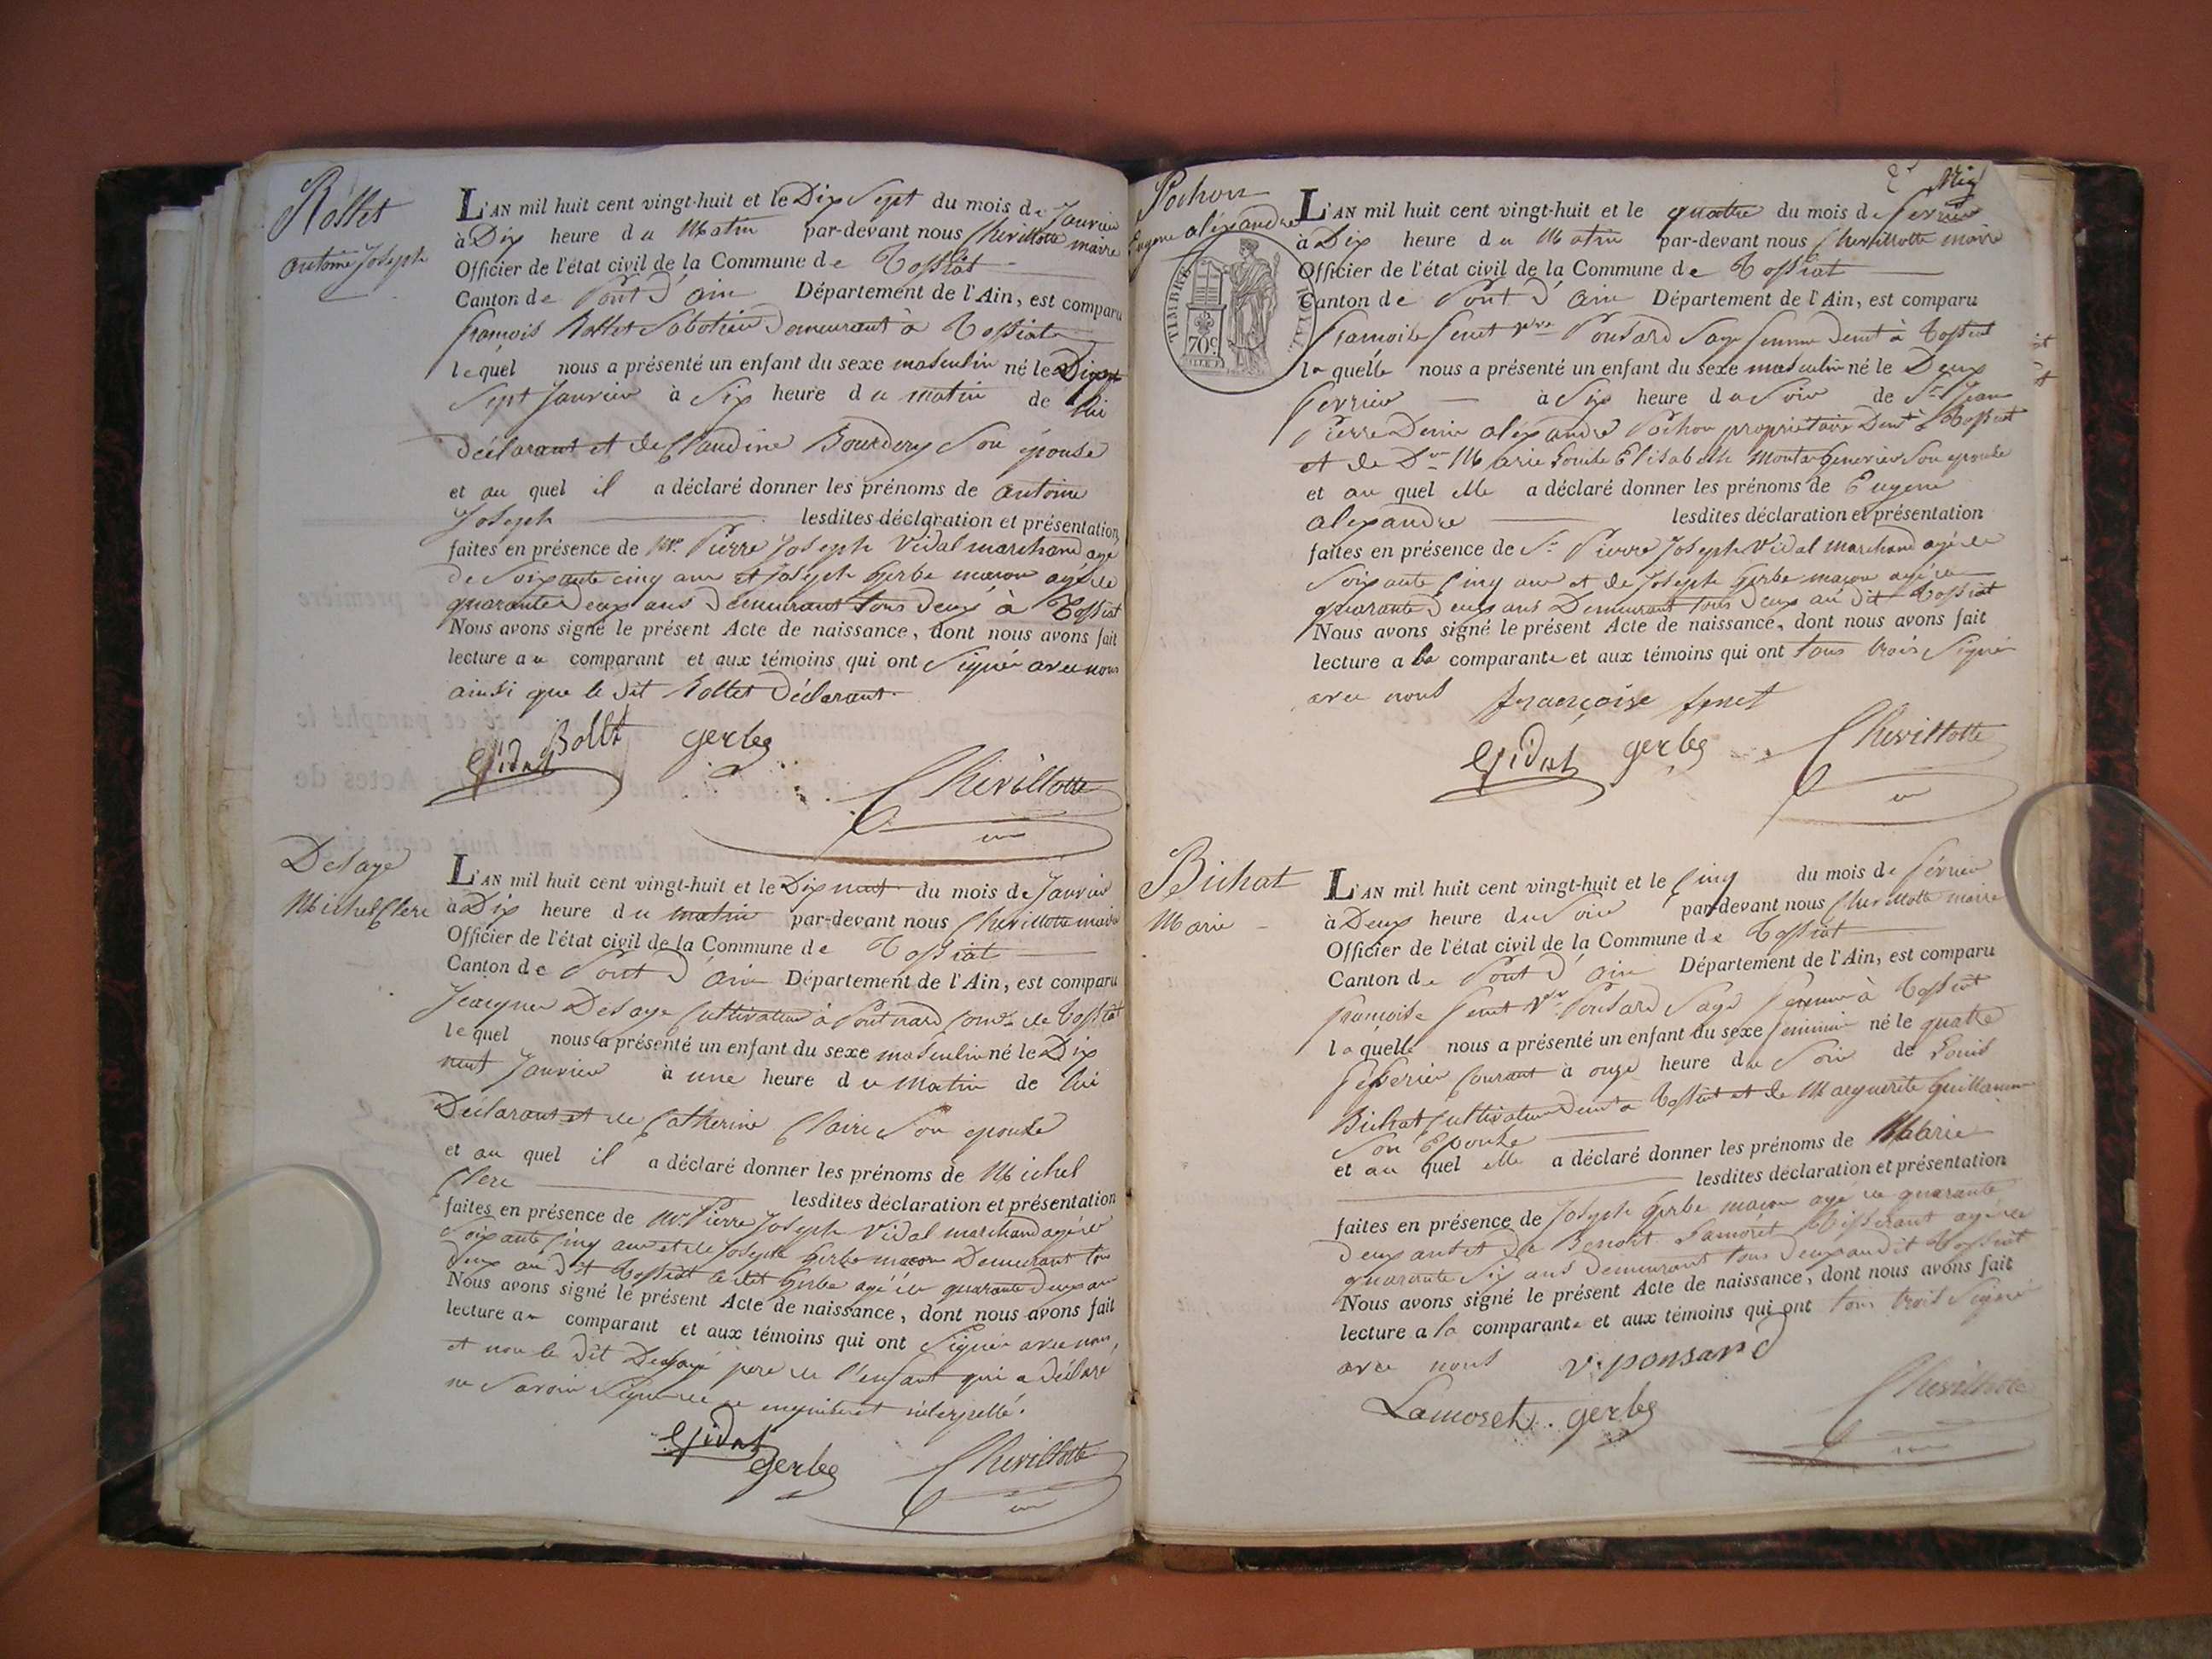 Rollet
antoine Joseph
L'AN mil huit cent vingt-huit et le Dix Sept du mois de Janvier
à Dix heure du Matin par-devant nous Chevillotte maire
Officier de l'état civil de la Commune de Tossiat
Canton de Pont d'ain Département de l'Ain, est comparu
françois Rollet Sabotier demeurant à Tossiat
lequel nous a présenté un enfant du sexe masculin né le Dix
Sept Janvier à Six heure du matin de lui
déclarant et de Claudine Bourdery Son épouse
et au quel il a déclaré donner les prénoms de antoine
Joseph lesdites déclaration et présentation
faites en présence de Mr. Pierre Joseph Vidal marchand agé
de Soixante cinq ans et Joseph Gerbe maçon agé de
quarante Deux ans demeurant tous deux à Tossiat
Nous avons signé le présent Acte de naissance, dont nous avons fait
lecture au comparant et aux témoins qui ont Signés avec nous
ainsi que le dit Rollet Déclarant
Vidal Rollt gerbe
Chevillotte
Desaye
Michel Clerc
L'AN mil huit cent vingt-huit et le Dix neuf du mois de Janvier
à Dix heure du matin par-devant nous Chevillotte maire
Officier de l'état civil de la Commune de Tossiat
Canton de Pont d'ain Département de l'Ain, est comparu
Jacques Desaye Cultivateur à Pontnard Comne de Tossiat
lequel nous a présenté un enfant du sexe masculin né le Dix
neuf Janvier à une heure du matin de lui
Déclarant et de Catherine Claire Son epouse
et au quel il a déclaré donner les prénoms de Michel
Clerc lesdites déclaration et présentation
faites en présence de Mr. Pierre Joseph Vidal marchand agé de
Soixante Cinq ans et de Joseph Gerbe maçon Demeurant tous
deux au dit Tossiat le dit Gerbe agé de quarante Deux ans
Nous avons signé le présent Acte de naissance, dont nous avons fait
lecture au comparant et aux témoins qui ont Signés avec nous,
et non le dit Desaye pere de l'enfant qui a déclaré
ne Savoir Signer de ce enquis et interpellé.
Vidal
gerbe Chevillotte
Pochon
Eugene alexandre
TIMBRE ROYAL
70c
L'AN mil huit cent vingt-huit et le quatre du mois de fevrier
à Dix heure du Matin par-devant nous Chevillotte maire
Officier de l'état civil de la Commune de Tossiat
Canton de Pont d'ain Département de l'Ain, est comparu
françoise Genet Vve Ponsard Sage femme demt à Tossiat
laquelle nous a présenté un enfant du sexe masculin né le Deux
fevrier à Six heure du Soir de Sr Jean
Pierre Denis alexandre Pochon propriétaire Demt à Tossiat
et de Dme Marie Louise Elisabeth Son epouse
et au quel elle a déclaré donner les prénoms de Eugene
alexandre lesdites déclaration et présentation
faites en présence de Sr Pierre Joseph Vidal marchand agé de
Soixante Cinq ans et de Joseph Gerbe maçon agé de
quarante deux ans Demeurant tous deux au dit Tossiat
Nous avons signé le présent Acte de naissance, dont nous avons fait
lecture a la comparante et aux témoins qui ont tous trois Signé
avec nous françoise
Vidal gerbe Chevillotte
Bichat
Marie
L'AN mil huit cent vingt-huit et le Cinq du mois de février
à Deux heure du Soir par-devant nous Chevillotte maire
Officier de l'état civil de la Commune de Tossiat
Canton de Pont d'ain Département de l'Ain, est comparu
françoise Genet Vve Ponsard Sage femme à Tossiat
laquelle nous a présenté un enfant du sexe feminin né le quatre
Courant à onze heure du Soir de Louis
Bichat Cultivateur demt à Tossiat et de Marguerite Guillaume
Son Epouse
et au quel elle a déclaré donner les prénoms de Marie
lesdites déclaration et présentation
faites en présence de Joseph Gerbe maçon agé de quarante
deux ans et de Benoit Lamoret Tisserant agé de
quarante Six ans demeurant tous deux au dit Tossiat
Nous avons signé le présent Acte de naissance, dont nous avons fait
lecture a la comparante et aux témoins qui ont tous trois Signé
avec nous v. ponsard
Lamoret gerbe Chevillotte